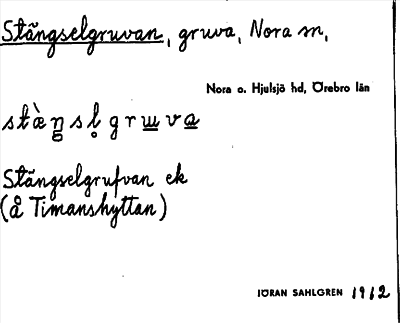 Stängselgruvan, gruva, Nora sn,
Nora o. Hjulsjö hd, Örebro län
stæ̀ŋsl̥gruva
Stängselgrufvan ek
(å Timanshyttan)
JÖRAN SAHLGREN 1912